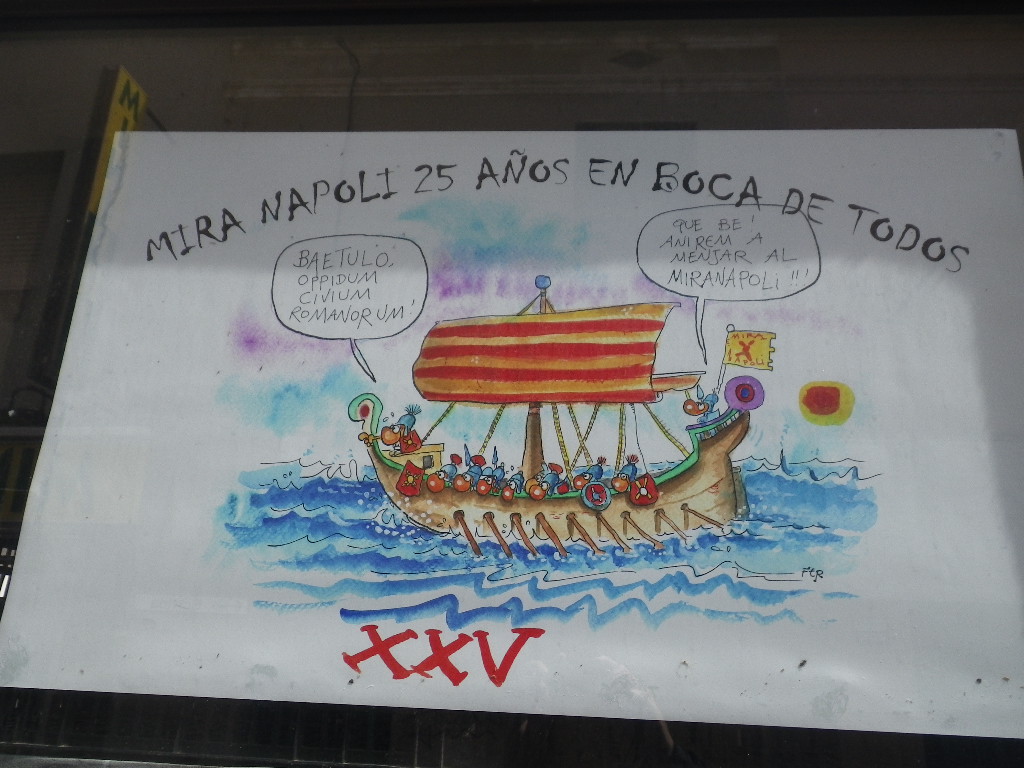 MIRA NAPOLI 25 AÑOS EN BOCA DE TODOS
BAETULO,
OPPIDUM
CIVIUM
ROMANORUM!
QUE BE!
ANIREM A
MENJAR AL
MIRANAPOLI!!!
MIRA
NAPOLI
FER
XXV
M